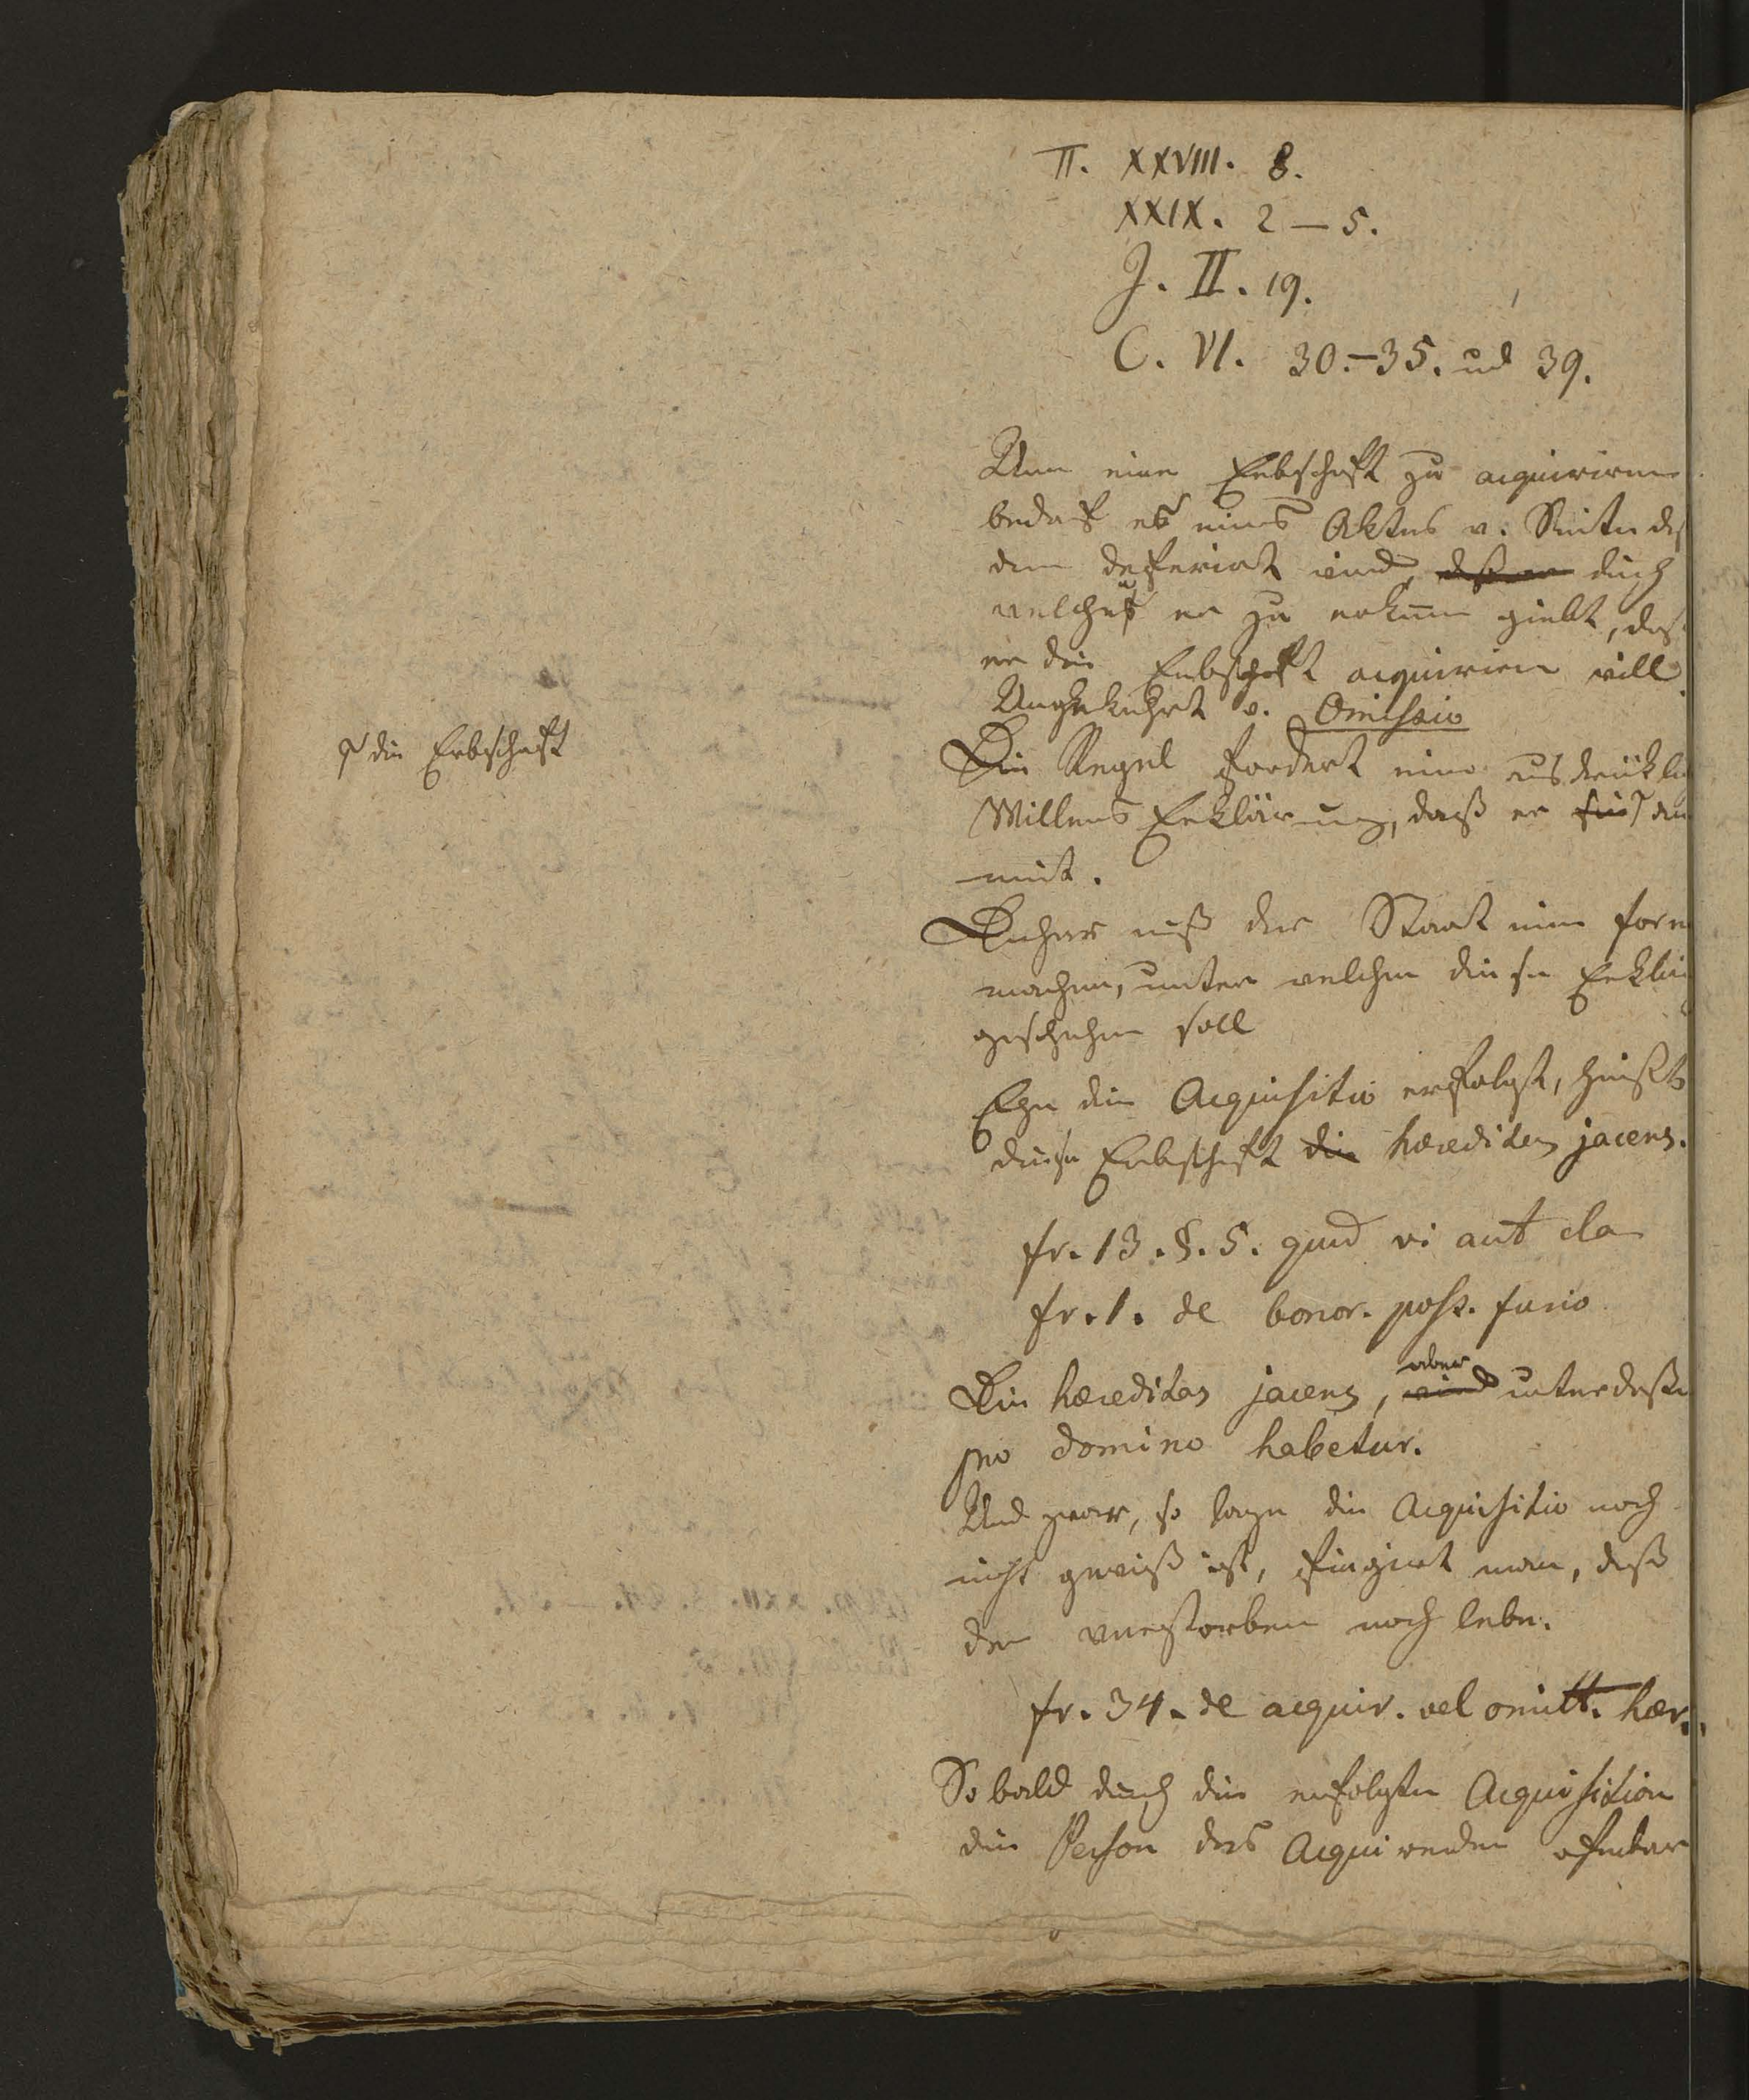 Π. XXVIII. 8.
XXIX. 2 – 5.
J. II. 19.
C. VI. 30.–35. und 39.
Um eine Erbschaft zu acquiriren
bedarf es eines Aktus v. Seiten deß
dem deferirt wird, durch
welchen er zu erkennen giebt, daß
er die Erbschaft acquiriren will.
Umgekehrt v. Omissio
Die Regel fordert eine ausdrükli
Willens Erklärung, daß er sie an
nimt.
⌈ die Erbschaft
Daher muß der Staat eine form
machen, unter welchen diese Erklär
geschehen soll
Ehe die Acquisitio erfolgt, heißt
diese Erbschaft die hæreditas jacens.
fr. 13. §. 5. quod vi aut cla
fr. 1. de bonor. poss. furio
Die hæreditas jacens, wird aber unterdeßen
pro domino habetur.
Und zwar, so lange die Acquisitio noch
nicht gewiß ist, fingirt man, daß
der verstorben noch lebe.
fr. 34. de acquir. vel omitt. hær.
So bald durch die erfolgte Acquisition
die Person des Acquirenden offenbar